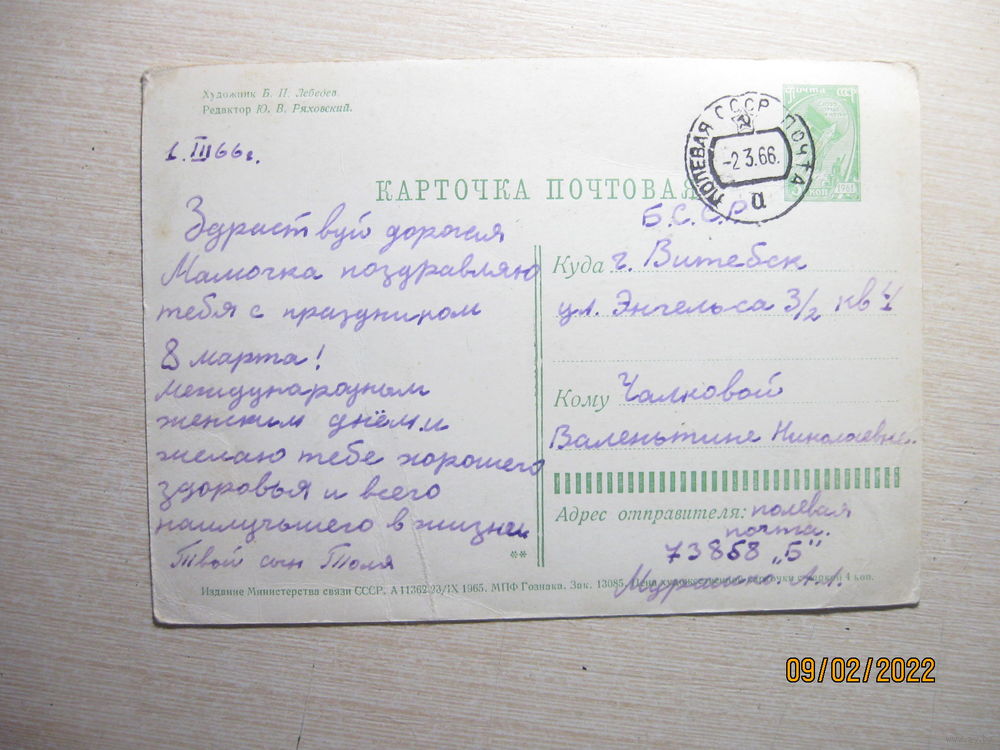 Художник Б. П. Лебедев.
Редактор Ю. В. Ряховский.
1. III 66 г.
КАРТОЧКА ПОЧТОВАЯ
Здраствуй дорогая
Мамочка поздравляю
тебя с праздником
8 марта!
международным
женским днём и
желаю тебе хорошего
здоровья и всего
наилучшего в жизни
Твой сын Толя
**
ПОЧТА СССР
1961
ПОЛЕВАЯ ПОЧТА
СССР
-2 3.66.
а
Б.С.С.Р
Куда г. Витебск
ул. Энгельса 3/2 кв 4
Кому Чалковой
Валентине Николаевне.
Адрес отправителя: полевая
почта.
73858 „Б"
А.Л.
Издание Министерства связи СССР. А 11362 23/IX 1965. МПФ Гознака. Зак. 13085. Цена художественной карточки с маркой 4 коп.
09/02/2022